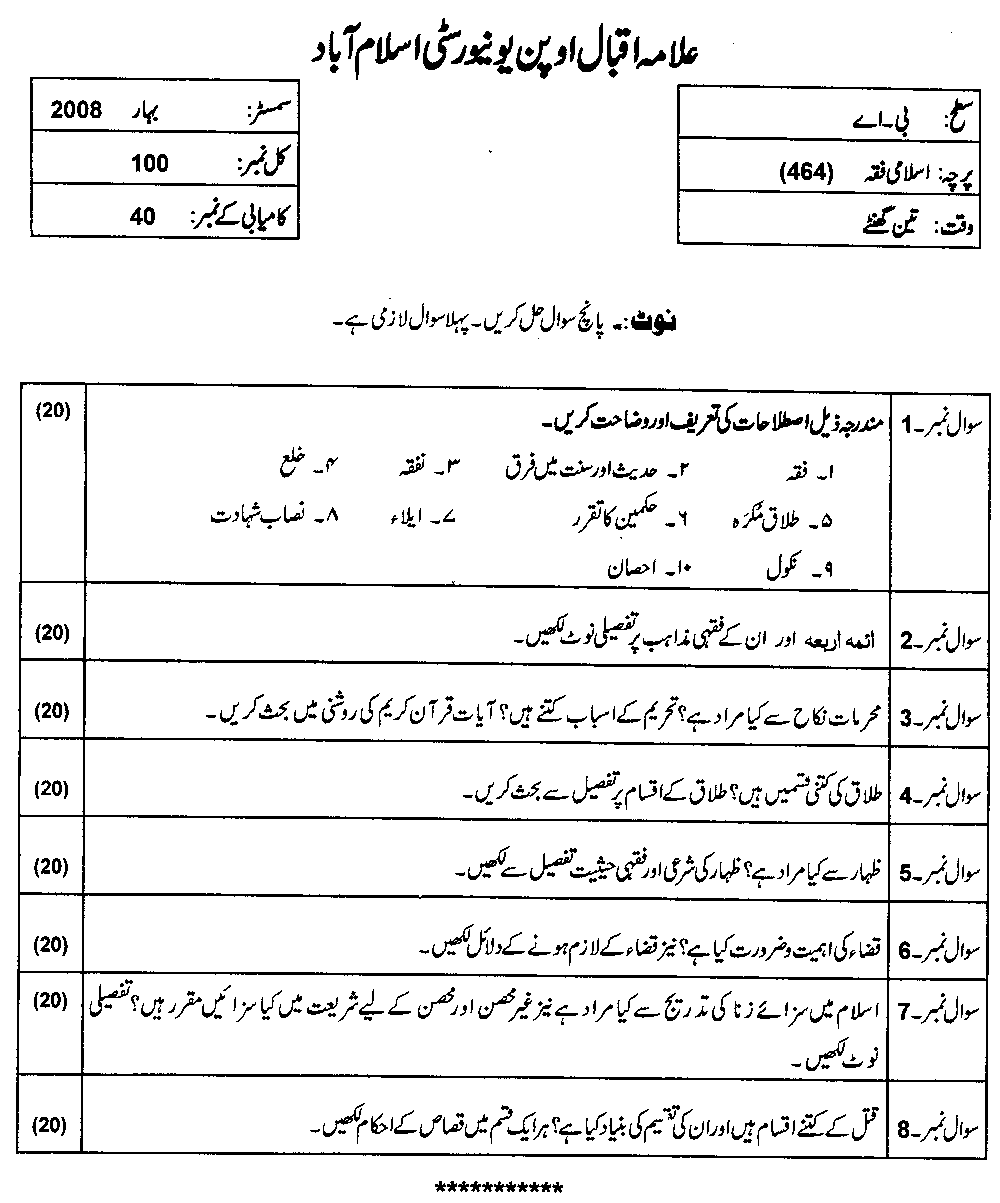 علامہ اقبال اوپن یونیورسٹی اسلام آباد
سطح: بی۔اے
پرچہ: اسلامی فقہ (464)
وقت: تین گھنٹے
سمسٹر: بہار 2008
کل نمبر: 100
کامیابی کے نمبر: 40
نوٹ:۔ پانچ سوال حل کریں۔ پہلا سوال لازمی ہے۔
سوال نمبر۔1 مندرجہ ذیل اصطلاحات کی تعریف اور وضاحت کریں۔ (20)
۱۔ فقہ ۲۔ حدیث اور سنت میں فرق ۳۔ نفقہ ۴۔ خلع
۵۔ طلاق مُکرَہ ۶۔ حکمین کا تقرر ۷۔ ایلاء ۸۔ نصاب شہادت
۹۔ نکول ۱۰۔ احصان
سوال نمبر۔2 ائمہ اربعہ اور ان کے فقہی مذاہب پر تفصیلی نوٹ لکھیں۔ (20)
سوال نمبر۔3 محرمات نکاح سے کیا مراد ہے؟ تحریم کے اسباب کتنے ہیں؟ آیات قرآن کریم کی روشنی میں بحث کریں۔ (20)
سوال نمبر۔4 طلاق کی کتنی قسمیں ہیں؟ طلاق کے اقسام پر تفصیل سے بحث کریں۔ (20)
سوال نمبر۔5 ظہار سے کیا مراد ہے؟ ظہار کی شرعی اور فقہی حیثیت تفصیل سے لکھیں۔ (20)
سوال نمبر۔6 قضاء کی اہمیت و ضرورت کیا ہے؟ نیز قضاء کے لازم ہونے کے دلائل لکھیں۔ (20)
سوال نمبر۔7 اسلام میں سزائے زنا کی تدریج سے کیا مراد ہے نیز غیر محصن اور محصن کے لیے شریعت میں کیا سزائیں مقرر ہیں؟ تفصیلی (20)
نوٹ لکھیں۔
سوال نمبر۔8 قتل کے کتنے اقسام ہیں اور ان کی تقسیم کی بنیاد کیا ہے؟ ہر ایک قسم میں قصاص کے احکام لکھیں۔ (20)
***********